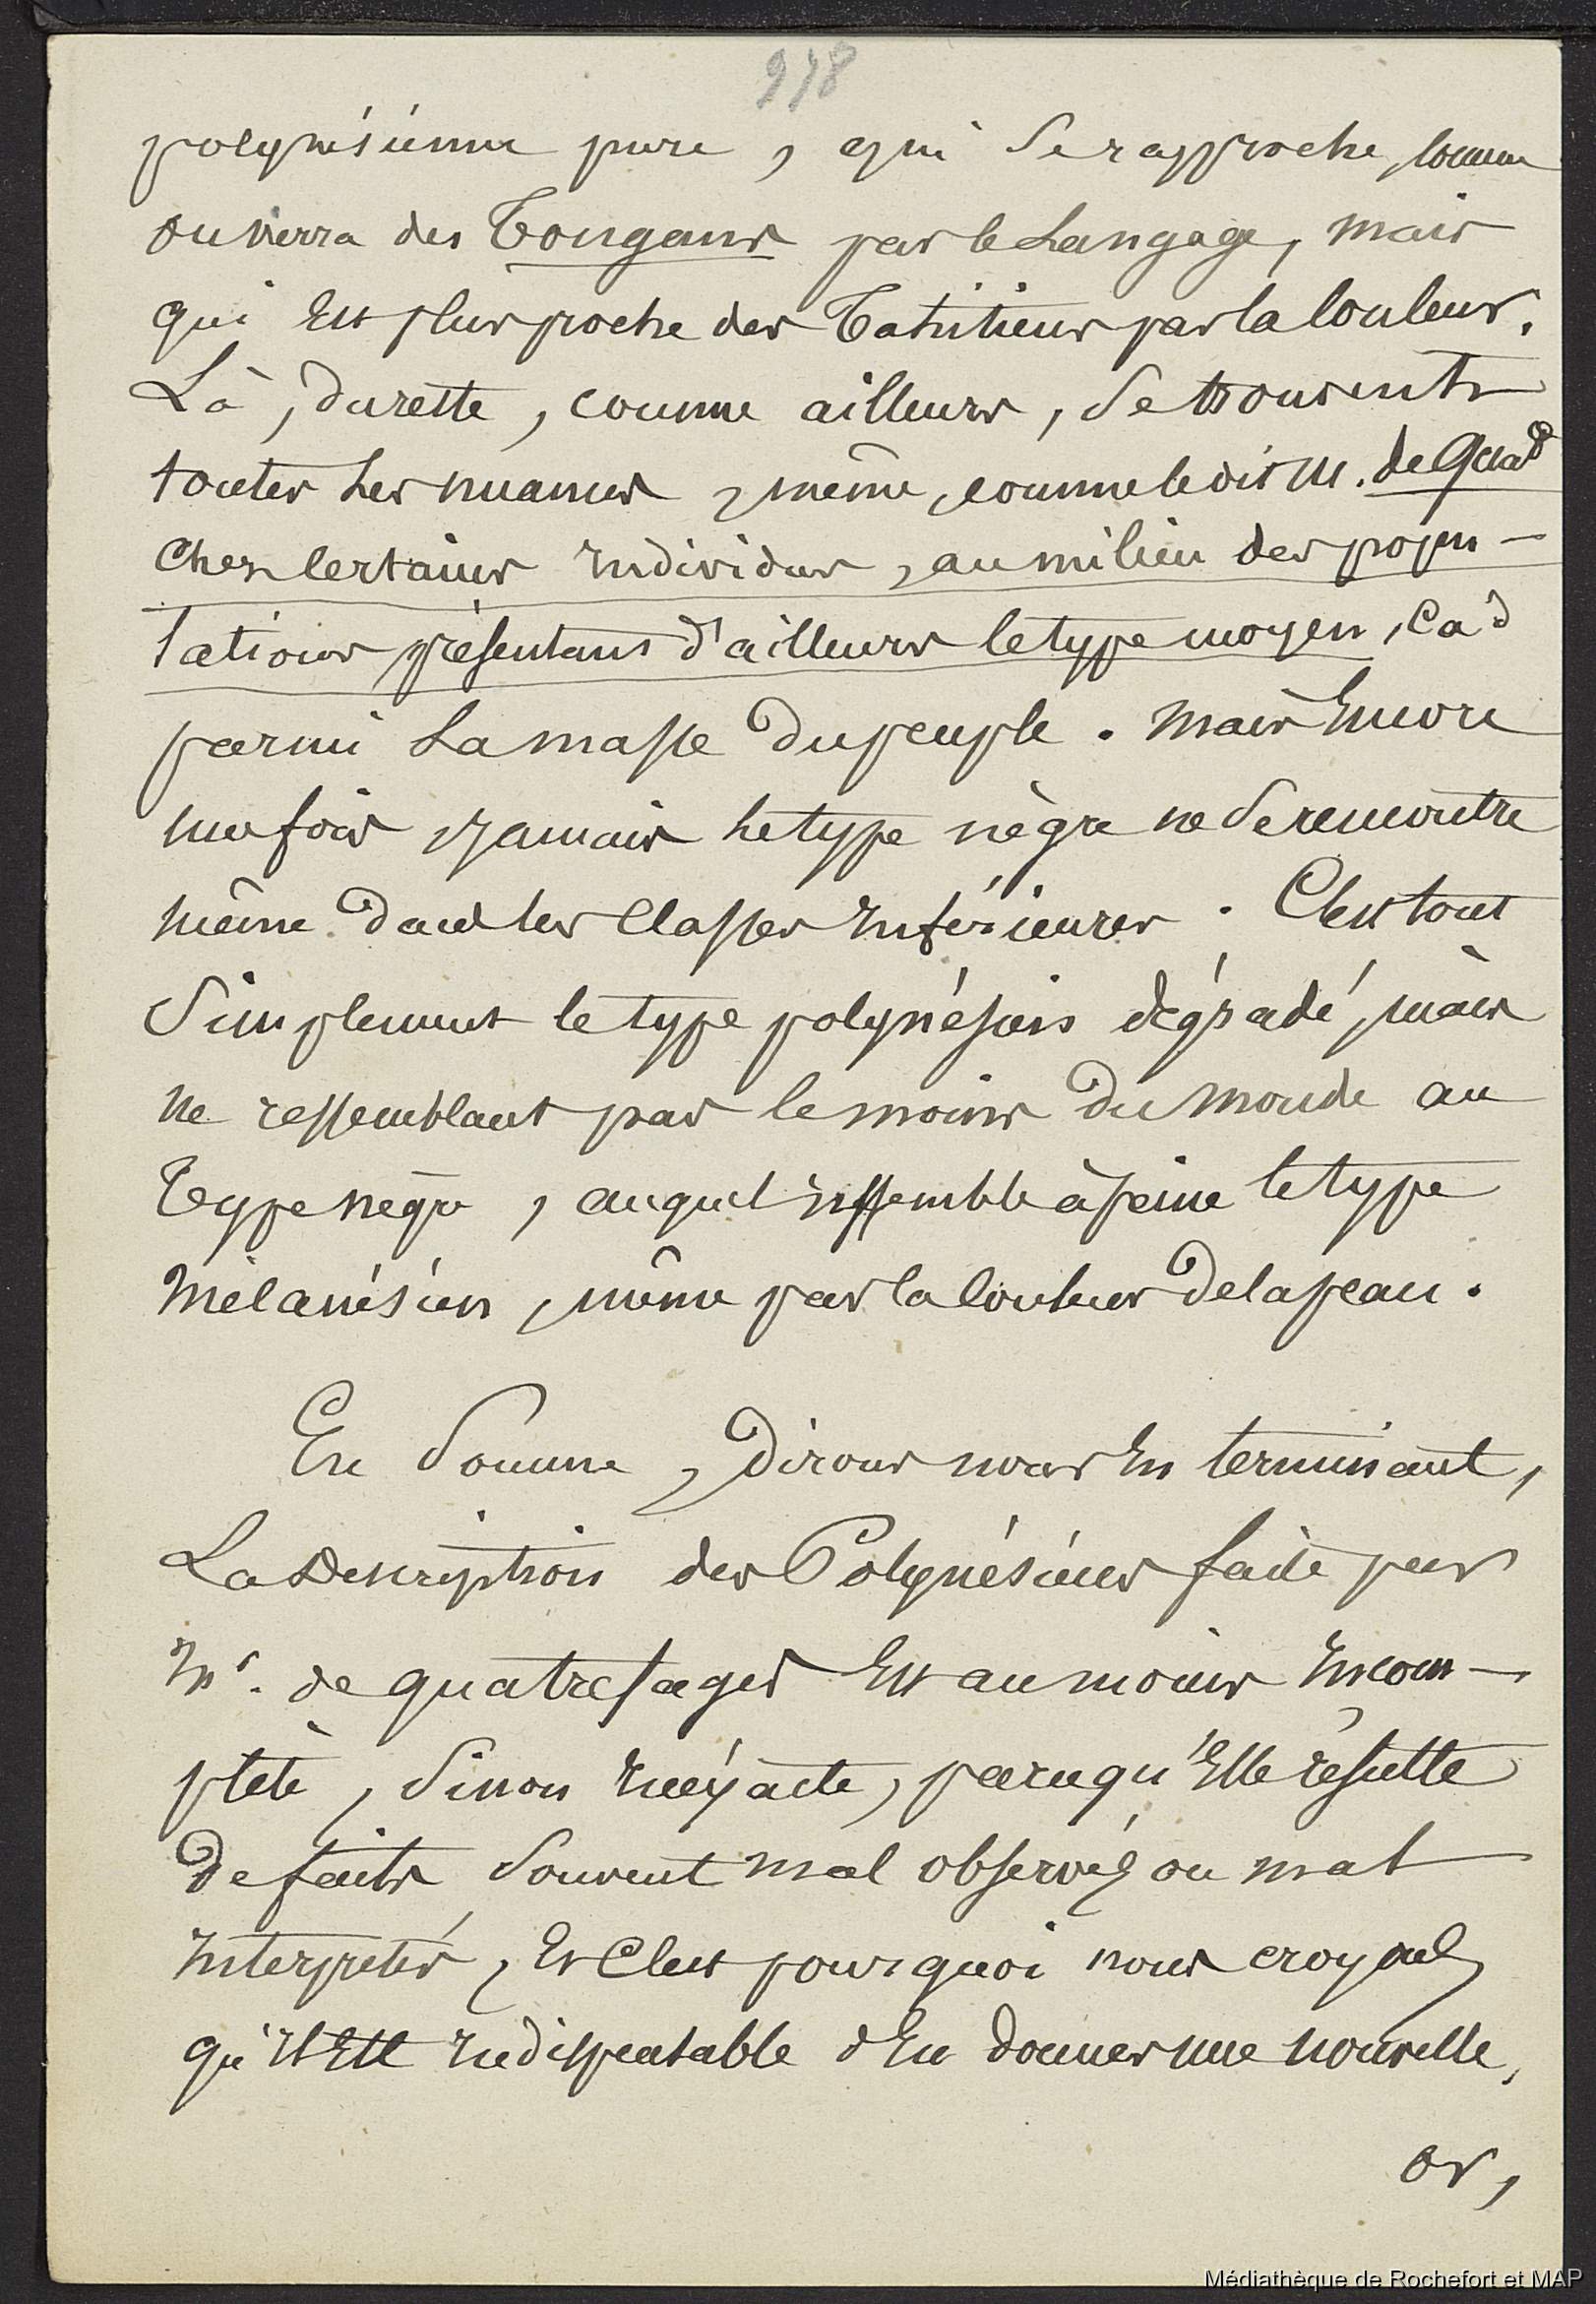 978
polynésienne pure, qui se rapproche, comme
on verra des Tongans par le langage, mais
qui est plus proche des Tahitiens par la couleur.
Là, du reste, comme ailleurs, se trouvent
toutes les nuances, même, comme le dit M. de Quad
chez certains individus, au milieu des popu-
lations présentant d'ailleurs le type moyen, càd
parmi la masse du peuple. Mais encore
une fois, jamais le type nègre ne se rencontre
même dans les classes inférieures. C'est tout
simplement le type polynésien dégradé, mais
ne ressemblant pas le moins du monde au
type nègre, auquel ressemble à peine le type
mélanésien, même par la couleur de la peau.
En somme, dirons nous en terminant,
La description des Polynésiens faite par
Mr. de quatrefages est au moins incom-
plète, sinon inéxacte, parcequ'elle résulte
de faits souvent mal observés ou mal
interpretés, et c'est pourquoi nous croyons
qu'il est indispensable d'en donner une nouvelle,
or,
Médiathèque de Rochefort et MAP